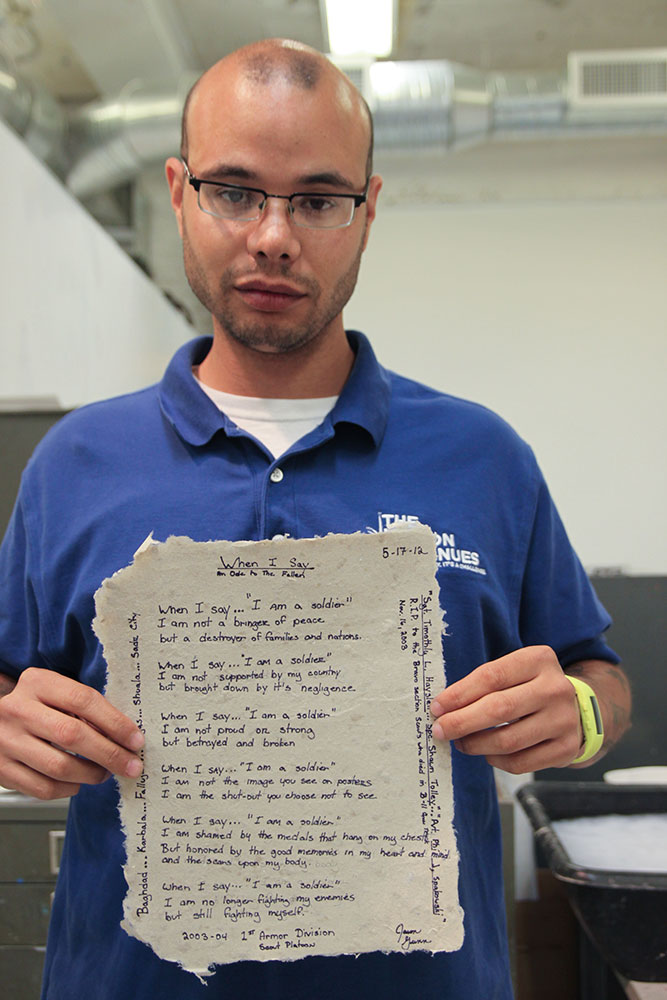 THE
ON
NUES
IT'S A CHALLENGE
When I Say
An Ode to The Fallen
5-17-12
When I say..."I Am a soldier"
I am not a bringer of peace
but a destroyer of families and nations.
When I say..."I am a soldier"
I am not supported by my country
but brought down by it's negligence.
When I say..."I am a soldier"
I am not proud or strong
but betrayed and broken
When I say..."I am a soldier"
I am not the image you see on posters
I am the shut-out you choose not to see.
When I say..."I am a soldier"
I am shamed by the medals that hang on my chest
But honored by the good memories in my heart and mind
and the scars upon my body.
When I say..."I am a soldier"
I am no longer fighting my enemies
but still fighting myself.
2003-04 1st Armor Division
Scout Platoon
Jason
Gunn
Baghdad... Karbala... Falluj... Shuala... Sadr City
"Sgt. Timothy L. Hayslett... Spc Shawn Tolley... Art. Phil J. Spakowski"
R.I.P to the Bravo section Scouts who died in
Nov. 16, 2003